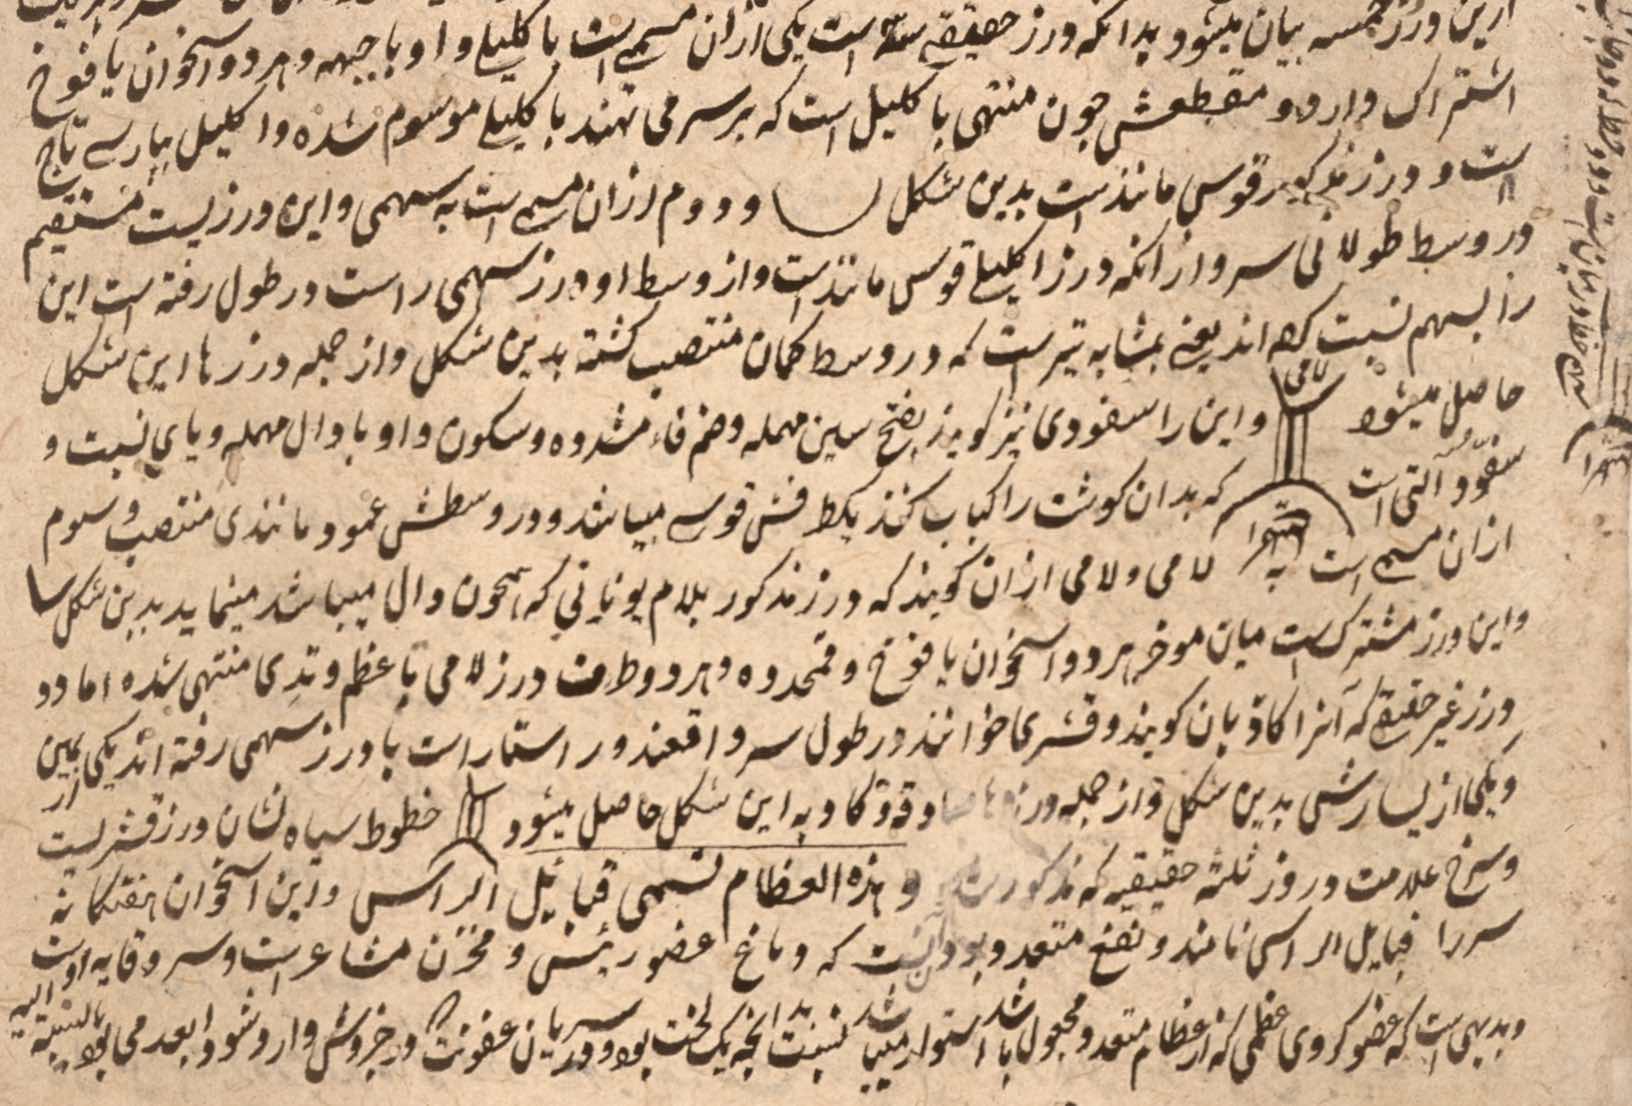 ازین درز خمسه بیان میشود بدانکه درز حقیقے سه است یکی ازان مسمے است با کلیلے و او با جبهه و هر دو استخوان یافوخ
اشتراک دارد و مقطعش چون منتهی با کلیل است که بر سر می نهند با کلیلے موسوم شده و اکلیل بپارسے تاج
است و درز مذکور قوس مانند است بدین شکل و دوم ازان مسمے است به سهمی و این درزیست مستقیم
در وسط طولانی سر و ازانکه درز اکلیلے قوس مانند است و از وسط او درز سهمی راست در طول رفته است این
را بسهم نسبت کرده اند یعنے بمشابه تیرست که در وسط کمان منتصب گشته بدین شکل و از جمله درزها این شکل
حاصل میشود لامی و این را سفودی نیز گویند بفتح سین مهمله و ضم فاء مشدده و سکون واو با دال مهمله و یای نسبت و
سفّود آلتی است که بدان گوشت را کباب کنند یکطرفش قوسے میباشد و در وسطش عمود مانندی منتصب و سوم
ازان مسمے است به لامی و لامی ازان گویند که درز مذکور بلام یونانی که همچون دال میباشد مینماید بدین شکل
و این درز مشترکست میان موخر هر دو استخوان یافوخ و قمحدوه و هر دو طرف درز لامی تا عظم وتدی منتهی شده اما دو
درز غیر حقیقے که آنرا کاذبان گویند و قشری خوانند در طول سر واقعند و راستاراست با درز سهمی رفته اند یکی از یمین
و یکی از یسارش بدین شکل و از جمله درزها صادقه و کاذبه این شکل حاصل میشود خطوط سیاه نشان درز قشریست
و سرخ علامت دروز ثلثه حقیقیه که مذکور شد و هذه العظام تسمی قبایل الراس و این استخوان هفتگانه
سر را قبایل الراس نامند و نفع متعدد بودن آنست که دماغ عضو رئیس و مخزن مشاعر است و سر وقایه اوست
و بدیهی است که عضو کروی عظمی که از عظام متعدد مجعول باشد استوار میباشد نسبت بدانچه یک لخت بود و در سریان عفونت که در جزوش وارد شود ابعد می بود بالنسبة الیه